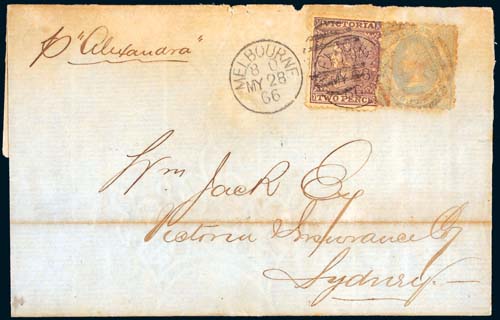 p "Alexandra"
MELBOURNE
8 O
MY 28
66
VICTORIA
TWO PENCE
Wm Jack Esq
Victoria Insurance Cy
Sydney.